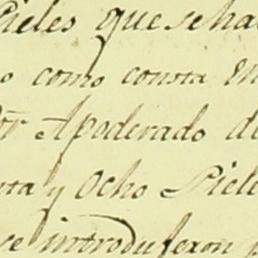 Pieles que se ha
o como consta en
Apoderado de
nta y Ocho Piele
se introdujeron p